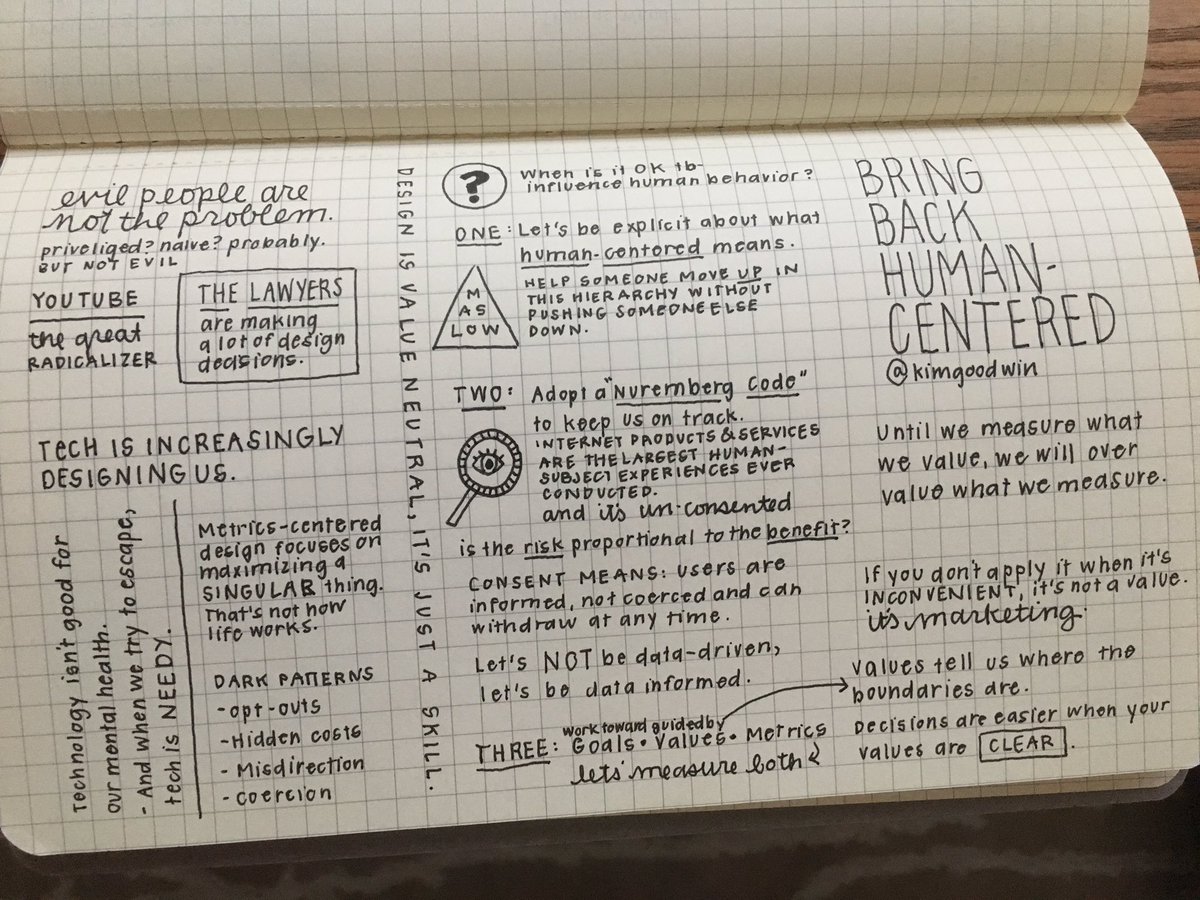 evil people are
not the problem.
priveliged? naive? probably.
BUT NOT EVIL
YOUTUBE
the great
RADICALIZER
THE LAWYERS
are making
a lot of design
decisions.
TECH IS INCREASINGLY
DESIGNING US.
Technology isn't good for
our mental health.
- And when we try to escape,
tech is NEEDY.
Metrics-centered
design focuses on
maximizing a
SINGULAR thing.
That's not how
life works.
DARK PATTERNS
- opt-outs
- Hidden costs
- Misdirection
- coercion
DESIGN IS VALUE NEUTRAL, IT'S JUST A SKILL.
?
When is it OK to
influence human behavior?
ONE: Let's be explicit about what
human-centored means.
M
AS
LOW
HELP SOMEONE MOVE UP IN
THIS HIERARCHY WITHOUT
PUSHING SOMEONE ELSE
DOWN.
TWO: Adopt a "Nuremberg Code"
to keep us on track.
INTERNET PRODUCTS & SERVICES
ARE THE LARGEST HUMAN-
SUBJECT EXPERIENCES EVER
CONDUCTED.
and it's un-consented
is the risk proportional to the benefit?
CONSENT MEANS: users are
informed, not coerced and can
withdraw at any time.
Let's NOT be data-driven,
let's be data informed.
work toward guided by
THREE: Goals • Values • Metrics
lets' measure both
BRING
BACK
HUMAN-
CENTERED
@kimgoodwin
Until we measure what
we value, we will over
value what we measure.
If you don't apply it when it's
INCONVENIENT, it's not a value.
it's marketing.
values tell us where the
boundaries are.
Decisions are easier when your
values are CLEAR.